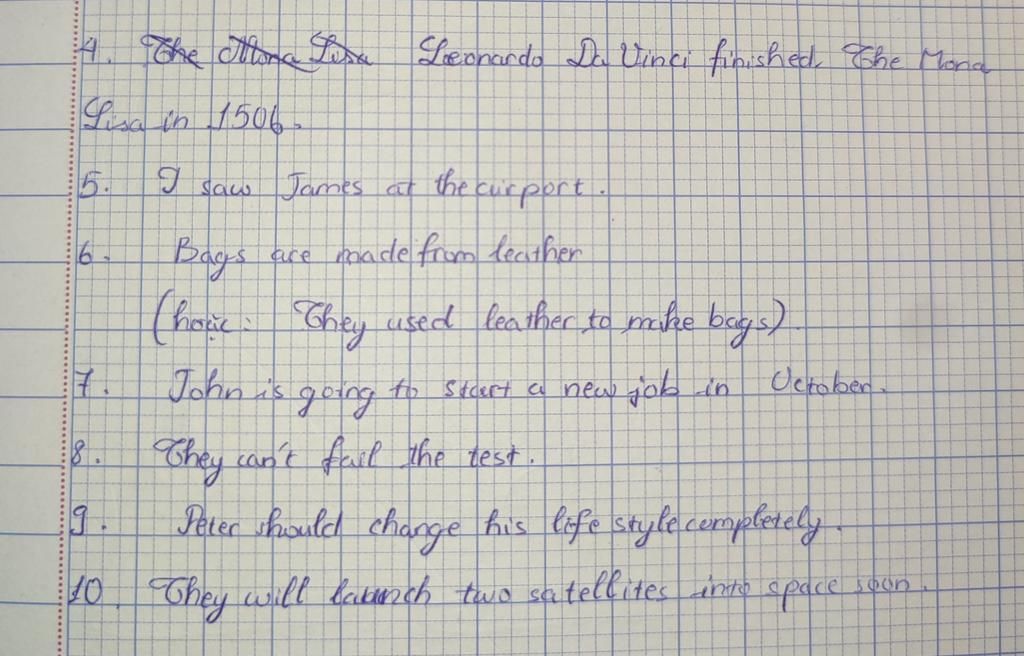 4. The Mona Lisa Leonardo Da Vinci finished The Mona
Lisa in 1506.
5. I saw James at the airport.
6. Bags are made from leather
(hoặc: They used leather to make bags)
7. John is going to start a new job in October.
8. They can't fail the test.
9. Peter should change his life style completely.
10. They will launch two satellites into space soon.